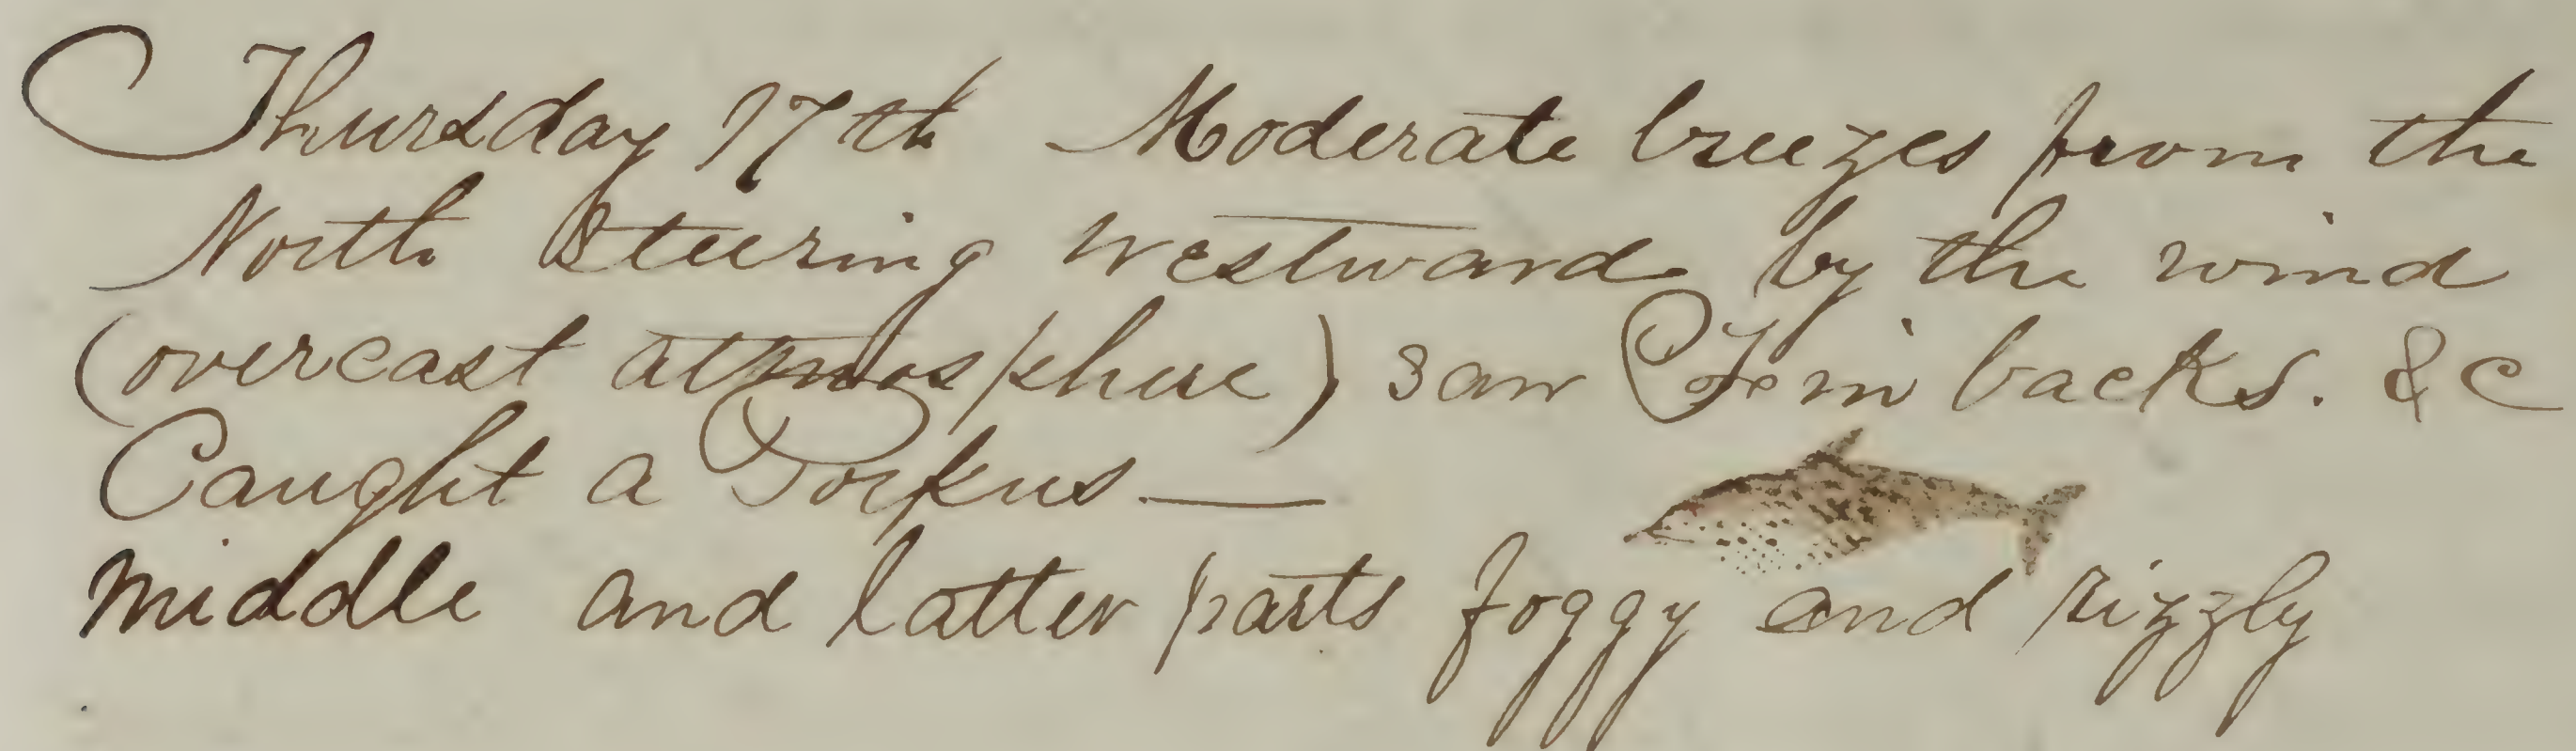 Thursday 17th Moderate breezes from the
North Steering Westward by the wind
(overcast atmosphere) saw Fin backs. &c
Caught a Porpus —
Middle and latter parts foggy and rizzly